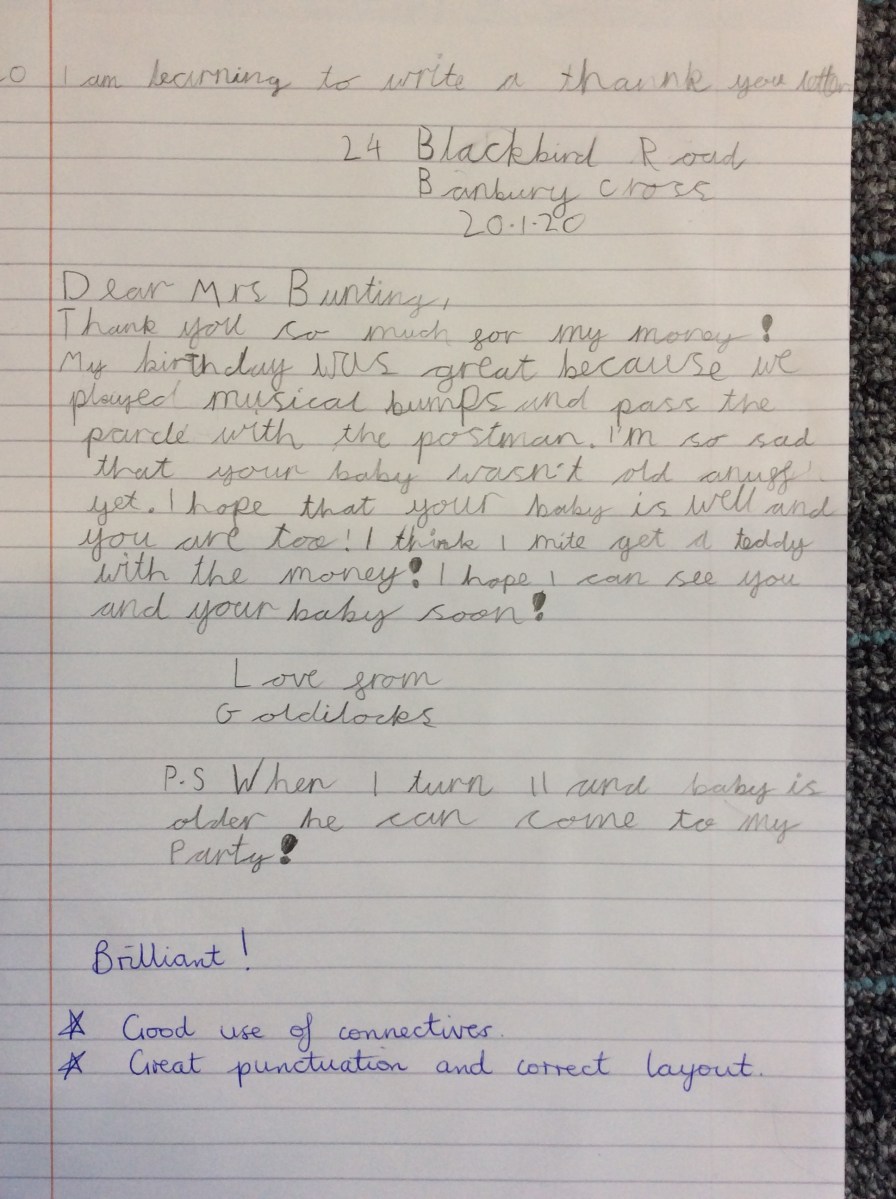 20 I am learning to write a thannk you letter
24 Blackbird Road
Banbury Cross
20.1.20
Dear Mrs Bunting,
Thank you so much for my money!
My birthday was great because we
played musical bumps and pass the
parcle with the postman. I'm so sad
that your baby wasn't old anuff
yet. I hope that your baby is well and
you are too! I think I mite get a teddy
with the money! I hope I can see you
and your baby soon!
Love from
Goldilocks
P.S When I turn 11 and baby is
older he can come to my
Party!
Brilliant!
☆ Good use of connectives.
☆ Great punctuation and correct layout.